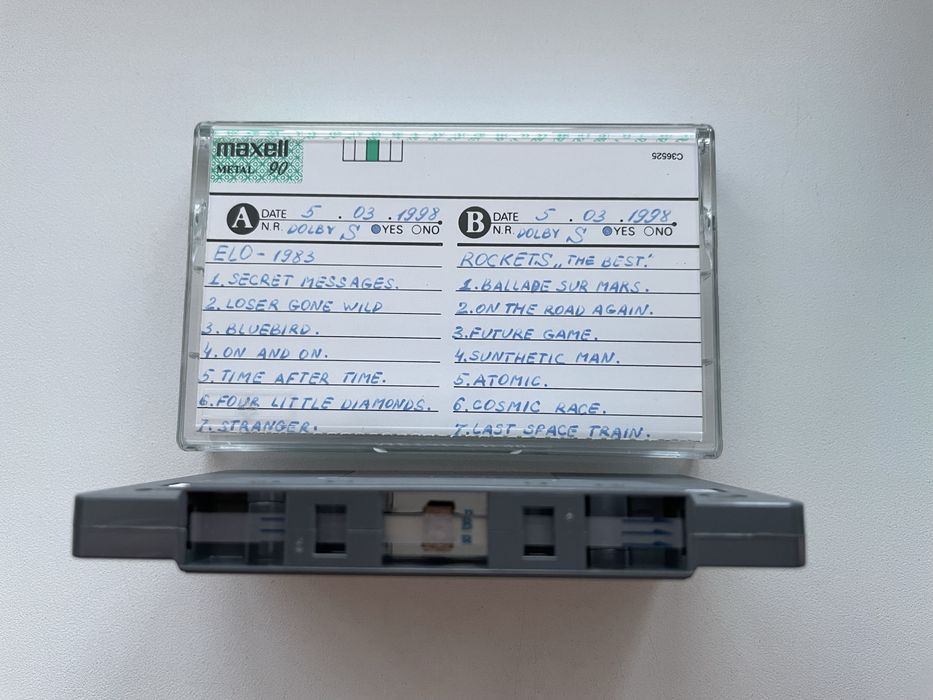 maxell
METAL 90
C36525
A DATE 5 . 03 . 1998.
N.R. DOLBY S YES NO
ELO - 1983
1. SECRET MESSAGES.
2. LOSER GONE WILD
3. BLUEBIRD.
4. ON AND ON.
5. TIME AFTER TIME.
6. FOUR LITTLE DIAMONDS.
7. STRANGER.
B DATE 5 . 03 . 1998.
N.R. DOLBY S YES NO
ROCKETS „THE BEST."
1. BALLADE SUR MARS.
2. ON THE ROAD AGAIN.
3. FUTURE GAME.
4. SUNTHETIC MAN.
5. ATOMIC.
6. COSMIC RACE.
7. LAST SPACE TRAIN.